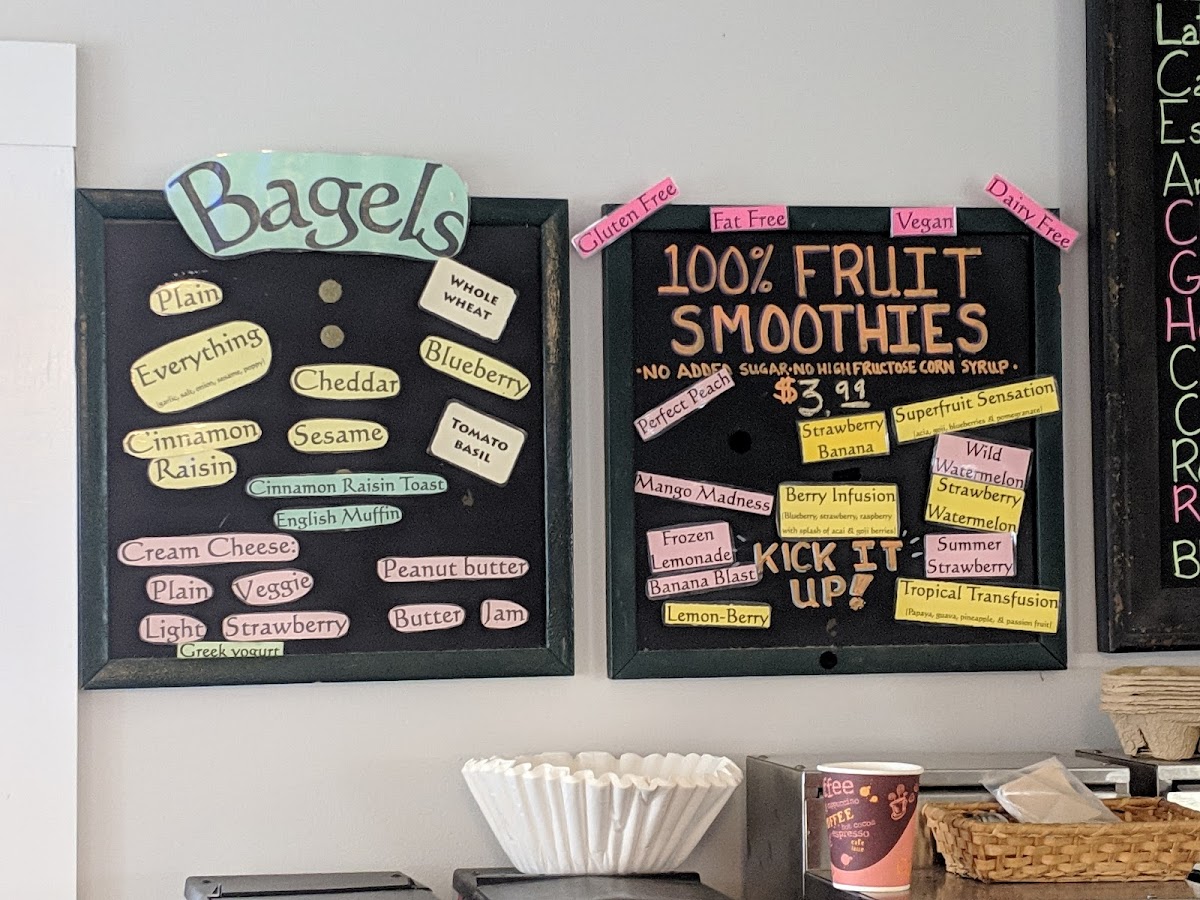 Bagels
Plain
WHOLE
WHEAT
Everything
(garlic, salt, onion, sesame, poppy)
Cheddar
Blueberry
Cinnamon
Raisin
Sesame
TOMATO
BASIL
Cinnamon Raisin Toast
English Muffin
Cream Cheese:
Plain
Veggie
Light
Strawberry
Greek yogurt
Peanut butter
Butter
Jam
Gluten Free
Fat Free
Vegan
Dairy Free
100% FRUIT
SMOOTHIES
•NO ADDED SUGAR•NO HIGH FRUCTOSE CORN SYRUP•
$3.99
Perfect Peach
Strawberry
Banana
Superfruit Sensation
(acia, goji, blueberries & pomegranate)
Wild
Watermelon
Mango Madness
Berry Infusion
(Blueberry, strawberry, raspberry
with splash of acai & goji berries)
Strawberry
Watermelon
Frozen
Lemonade
Banana Blast
KICK IT
UP!
Summer
Strawberry
Lemon-Berry
Tropical Transfusion
(Papaya, guava, pineapple, & passion fruit)
ffee
OFFEE
hot cocoa
espresso
cafe